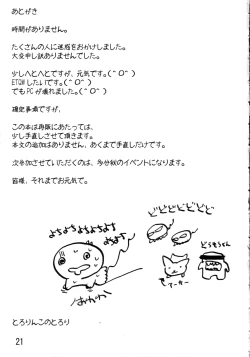 あとがき
時間がありません。
たくさんの人に迷惑をおかけしました。
大変申し訳ありませんでした。
少しへとへとですが、元気です。(^O^)
ETQWしたいです。(^O^)
でもPCが壊れました。(^O^)
確定事項ですが、
この本は再販にあたっては、
少し手直しさせて頂きます。
本文の追加はありません、あくまで手直しだけです。
次参加させていただくのは、多分秋のイベントになります。
皆様、それまでお元気で。
どどどどどどど
よちよちよちよちよす
どうもちゃん
とろりんこのとろり
21